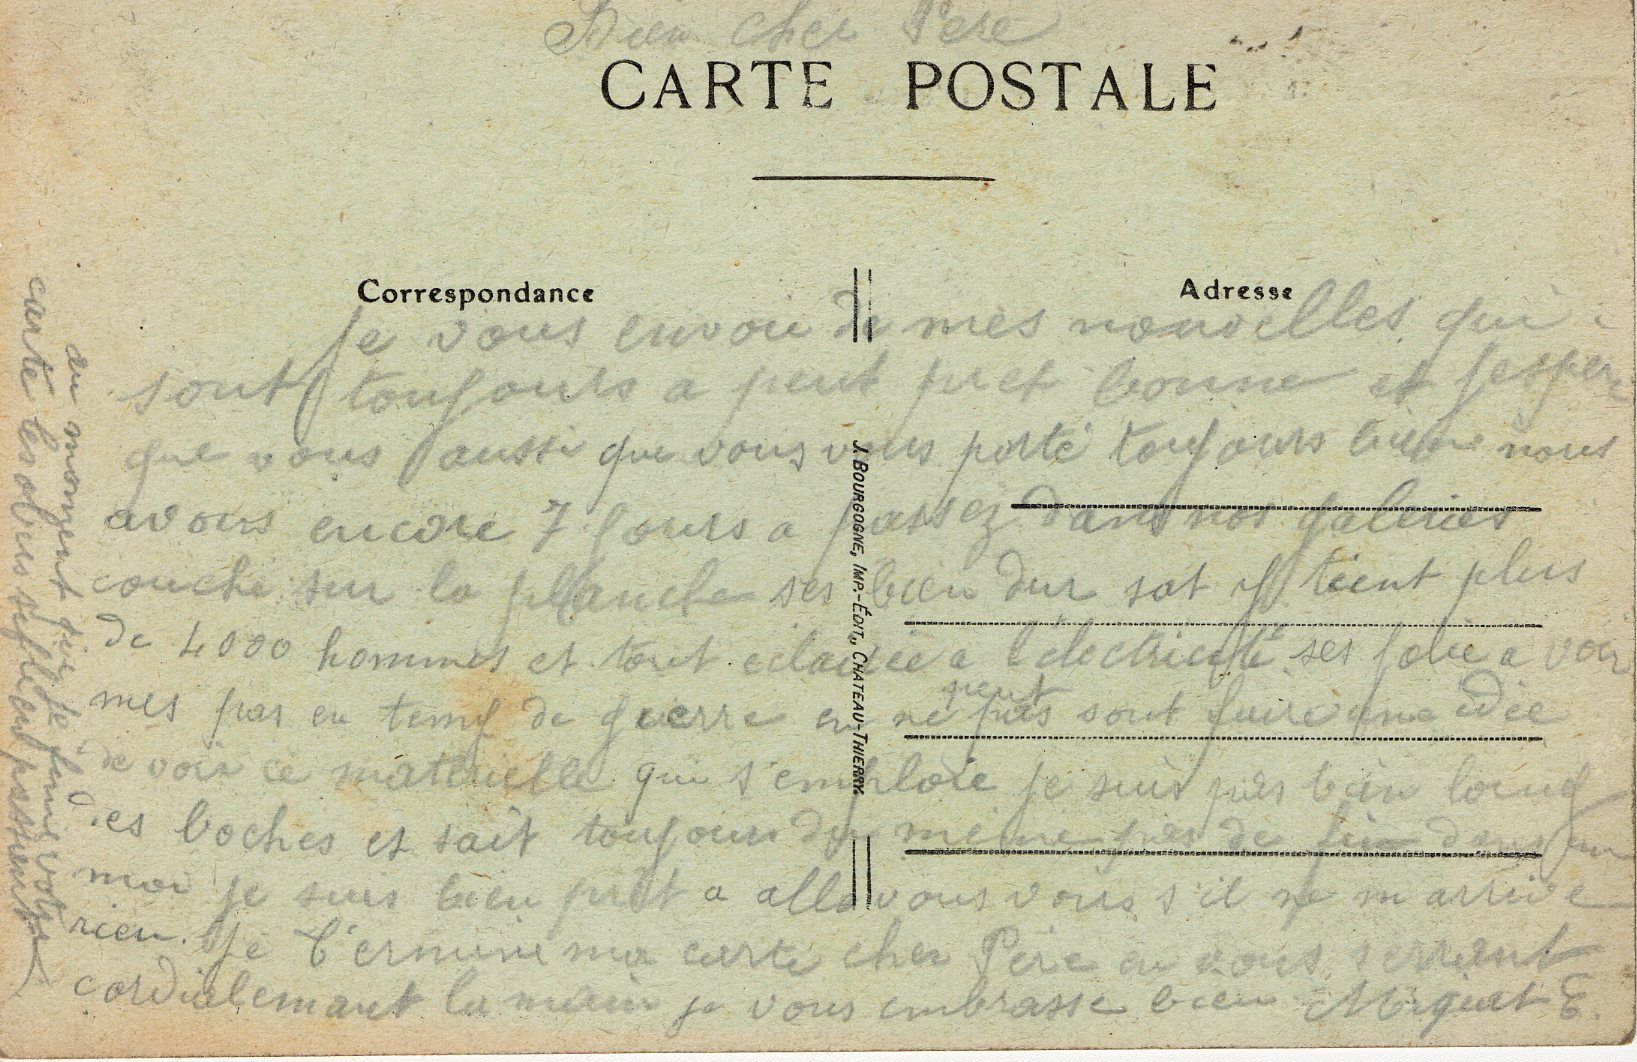 Bien cher Père
CARTE POSTALE
Correspondance
Adresse
Je vous envoie de mes nouvelles qui
sont toujours a peut pret bonne et j'espere
que vous aussi que vous vous porté toujours bien nous
avons encore 7 jours a passez dans nos galeries
couche sur la planche ses bien dur sat y tient plus
de 4000 hommes et tout eclairée a l'électricité ses jolie a voir
mes pas en temp de guerre en ne peut pas sont faire une idée
de voir ce materielle qui s'emploie je suis pas bien loing
des boches et sait toujours du même pas de fin dans un
moi je suis bien prêt a alle vous voirs s'il ne m'arrive
rien. Je termine ma carte cher Père en vous serrant
cordialemant la main je vous embrasse bien Miquat E.
au moment que je finie votre
carte les obus sifle en passient
J. BOURGOGNE, IMP.-ÉDIT., CHATEAU-THIERRY.